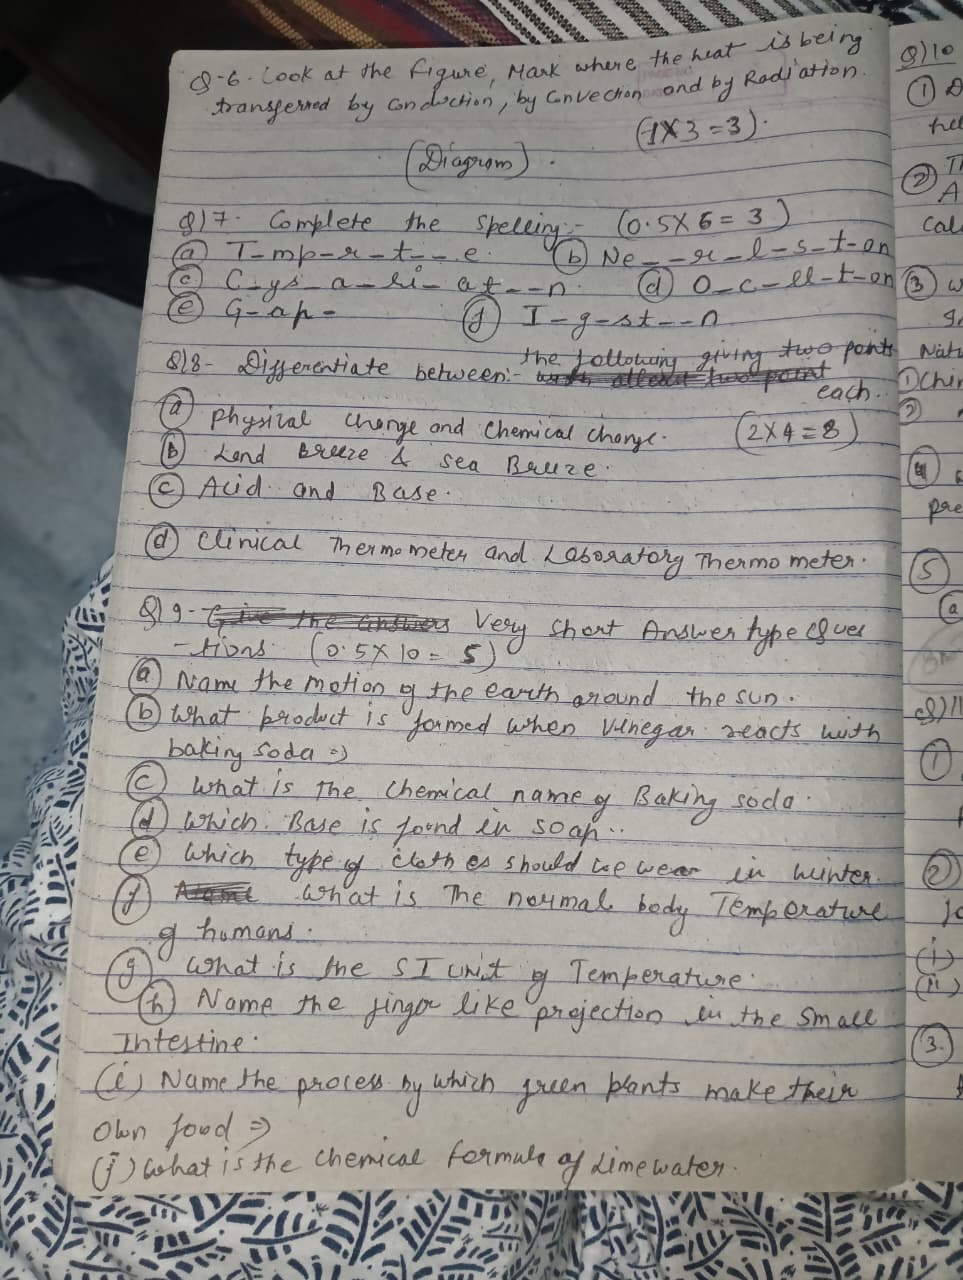 Q-6. Look at the figure, Mark where the heat is being
transferred by conduction, by Convection and by Radiation.
(1X3=3).
(Diagram).
Q)7. Complete the spelling:- (0.5X6=3)
(a) T-mp-r-t--e. (b) Ne--r-l-s-t-on
(c) C-ys-a-li-at--n. (d) O-c-ll-t-on
(e) G-ap- (f) I-g-st--n
Q)8- Differentiate between:- the following giving two points
each.
(a) Physical change and chemical change. (2X4=8)
(b) Land Breeze & Sea Breeze.
(c) Acid and Base.
(d) Clinical Thermometer and Laboratory Thermometer.
Q)9- Very Short Answer type Ques
-tions. (0.5X10=5)
(a) Name the motion of the earth around the sun.
(b) What product is formed when vinegar reacts with
baking soda =>
(c) What is the chemical name of Baking soda.
(d) Which Base is found in soap..
(e) Which type of clothes should we wear in winter.
(f) What is The normal body Temperature
of humans.
(g) What is the SI Unit of Temperature.
(h) Name the finger like projection in the small
Intestine.
(i) Name the process by which green plants make their
own food =>
(j) What is the chemical formula of Limewater.
Q)10
(1)
(2)
A
Cal
(3) w
(1) Chin
(2)
(4)
pre
(5)
(a)
Q)11
(1)
(2)
(i)
(ii)
(3.)